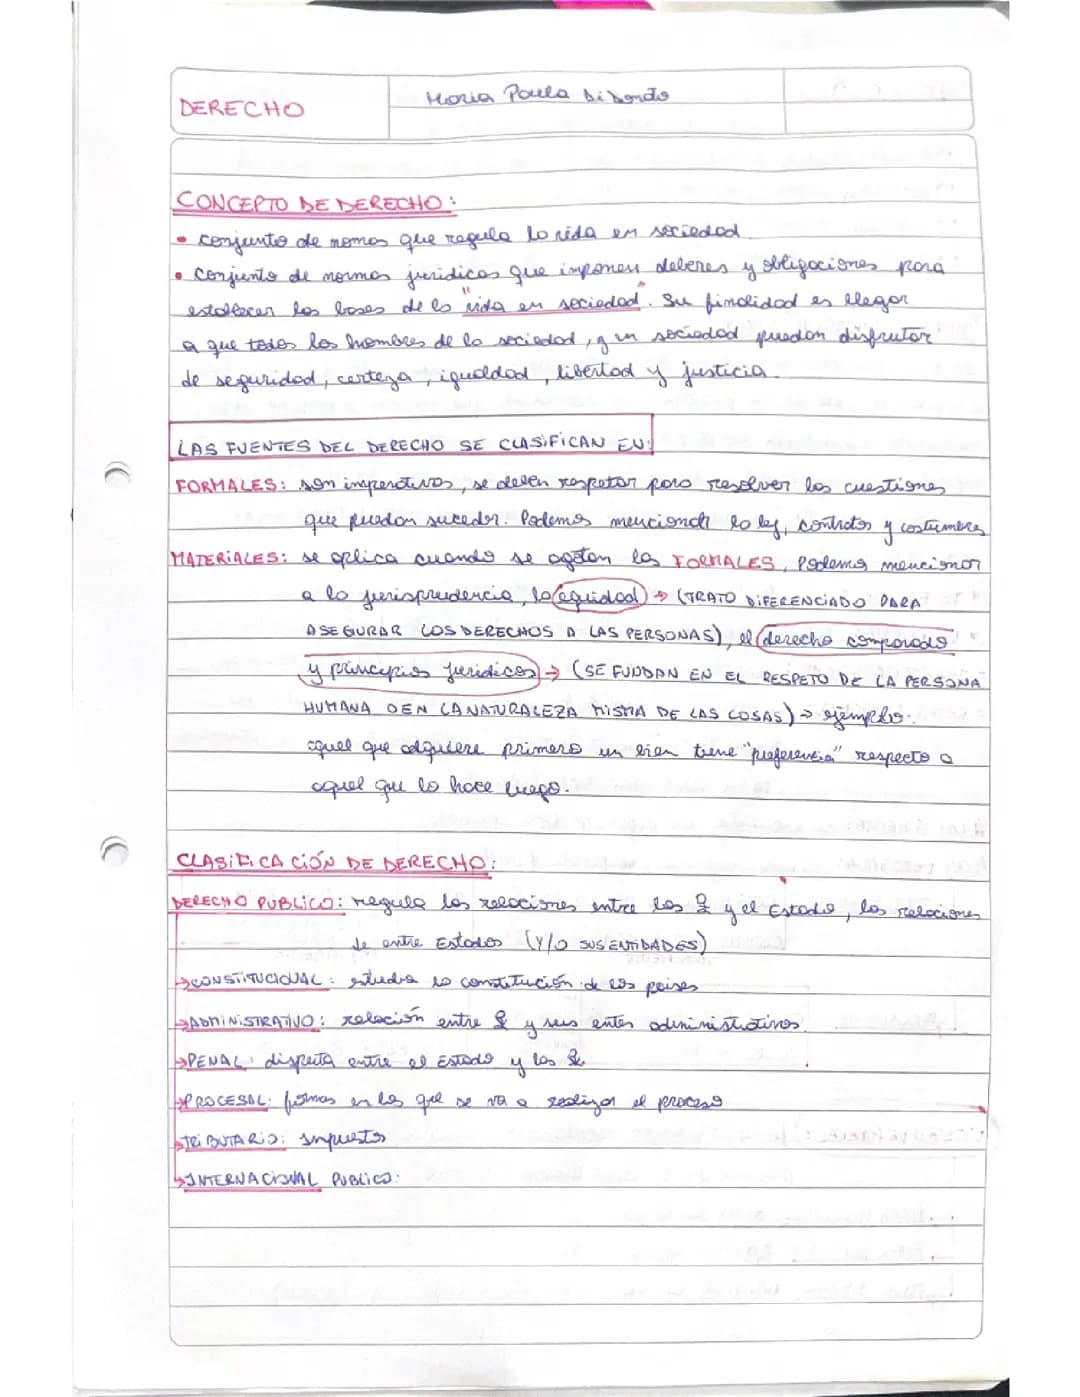 DERECHO
Maria Paula Di Donato
CONCEPTO DE DERECHO:
• conjunto de normas que regula la vida en sociedad
• conjunto de normas juridicas que imponen deberes y obligaciones para
establecer las bases de la "vida en sociedad". Su finalidad es llegar
a que todos los hombres de la sociedad, y en sociedad puedan disfrutar
de seguridad, certeza, igualdad, libertad y justicia.
LAS FUENTES DEL DERECHO SE CLASIFICAN EN:
FORMALES: son imperativas, se deben respetar para resolver las cuestiones
que puedan suceder. Podemos mencionar la ley, contratos y costumbres
MATERIALES: se aplica cuando se agotan las FORMALES, Podemos mencionar
a la jurisprudencia, la equidad → (TRATO DIFERENCIADO PARA
ASEGURAR LOS DERECHOS A LAS PERSONAS), el derecho comparado
y principios juridicos → (SE FUNDAN EN EL RESPETO DE LA PERSONA
HUMANA O EN LA NATURALEZA MISMA DE LAS COSAS) → ejemplo:
aquel que adquiere primero un bien tiene "preferencia" respecto a
aquel que lo hace luego.
CLASIFICACIÓN DE DERECHO:
DERECHO PUBLICO: regula las relaciones entre las y el Estado, las relaciones
de entre Estados (Y/O SUS ENTIDADES)
→CONSTITUCIONAL: estudia la constitución de los paises
→ADMINISTRATIVO: relación entre y sus entes administrativos
→PENAL: disputa entre el Estado y las
→PROCESAL: formas en las que se va a realizar el proceso
→TRIBUTARIO: impuestos
→INTERNACIONAL PUBLICO: